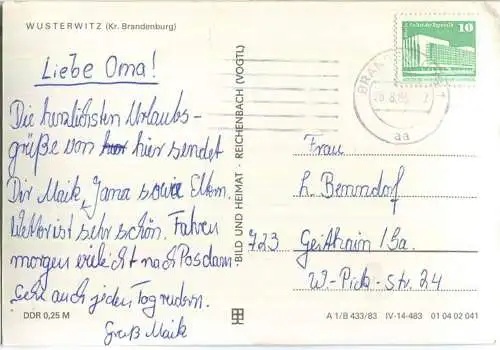 WUSTERWITZ (Kr. Brandenburg)
Liebe Oma!
Die herzlichsten Urlaubs-
grüße von hier sendet
Dir Maik, Jana sowie Eltern.
Wetter ist sehr schön. Fahren
morgen vieleicht nach Posdam.
Gehn auch jeden Tag rudern.
Gruß Maik
DDR 0,25 M
BILD UND HEIMAT · REICHENBACH (VOGTL)
10
aa
Frau
L. Benndorf
723 Geithain/Sa.
W-Pick-Str. 24
A 1/B 433/83 IV-14-483 01 04 02 041